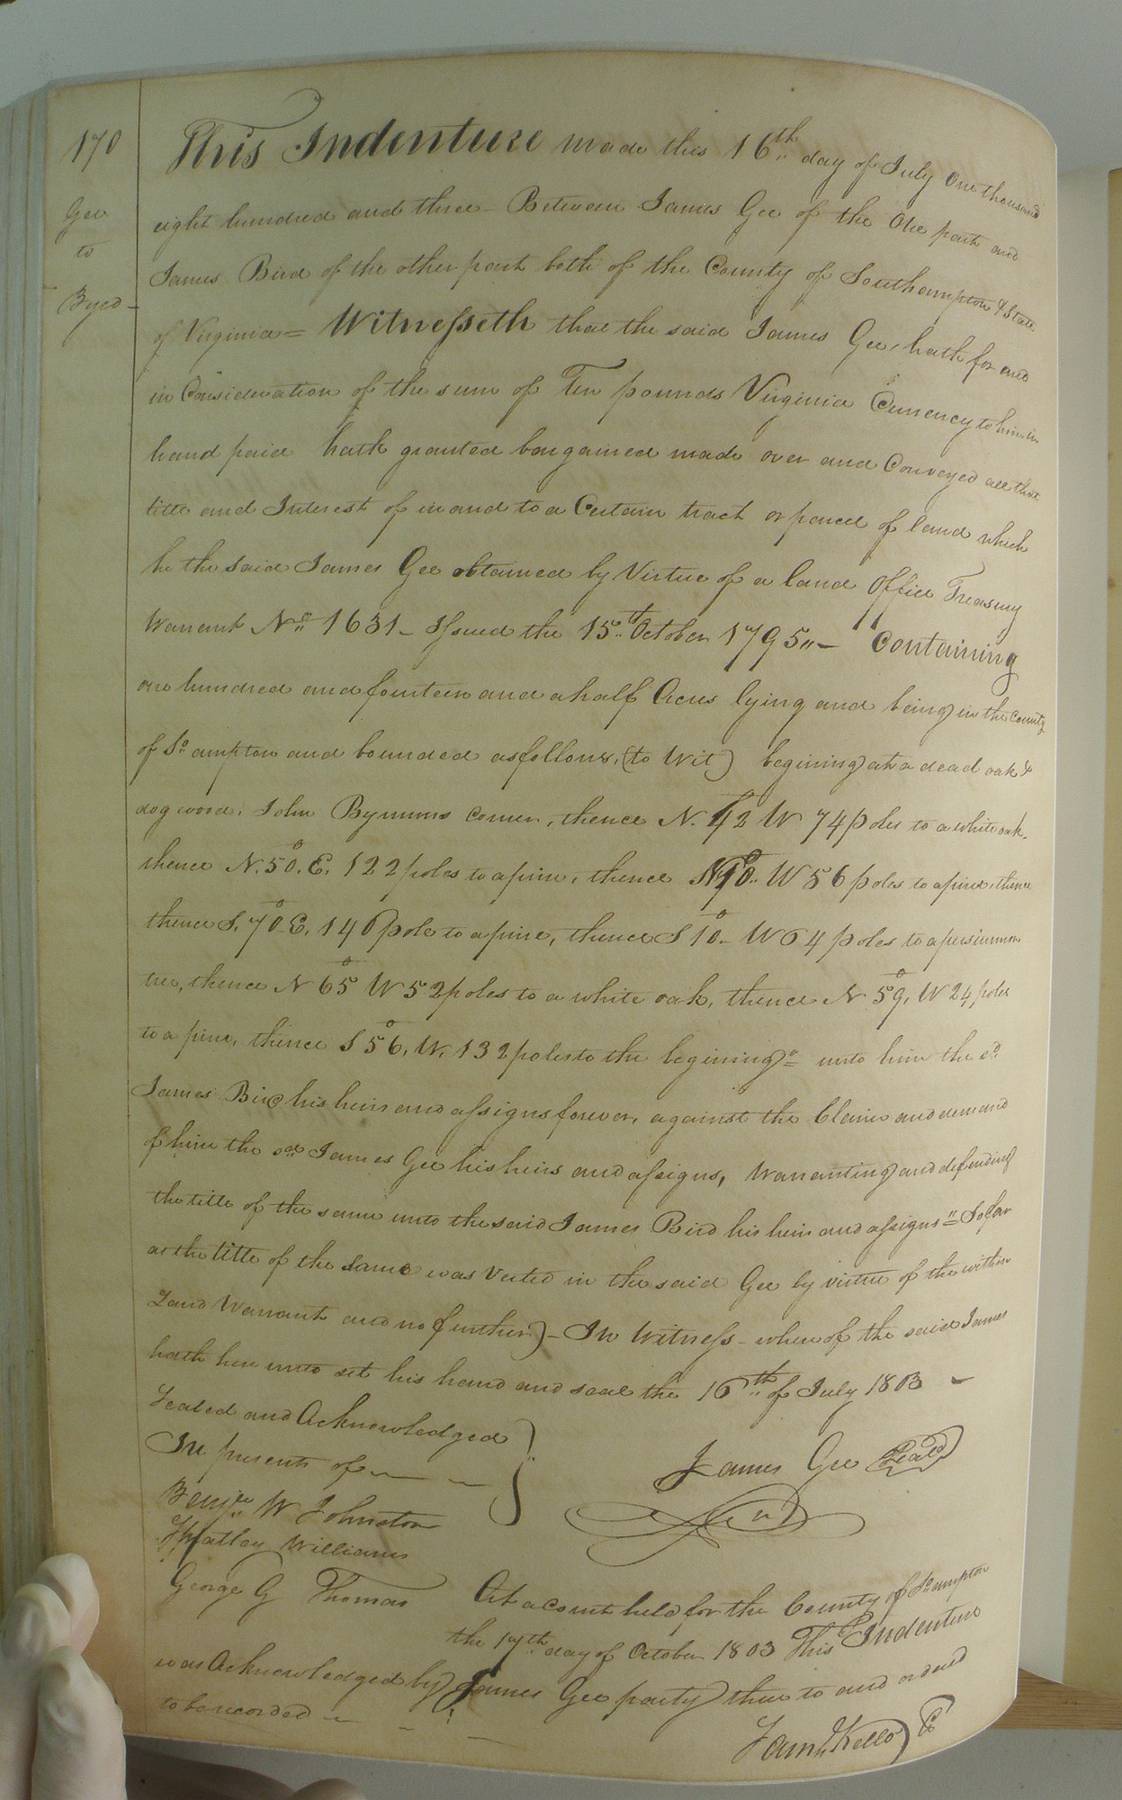 170
Gee
to
Byrd
This Indenture made this 16th day of July One thousand
eight hundred and three - Between James Gee of the One part and
James Bird of the other part both of the County of Southampton & State
of Virginia = Witnesseth that the said James Gee, hath for and
in Consideration of the sum of Ten pounds Virginia Currency to him in
hand paid hath granted bargained made over and Conveyed all that
title and Interest of in and to a Certain tract or parcel of land which
he the said James Gee obtained by Virtue of a land Office Treasury
Warrant No 1631 - Issued the 15th October 1795 - Containing
one hundred and fourteen and a half Acres lying and being in the County
of So ampton and bounded as follows, (to Wit) begining at a dead oak &
dog wood, John Bynums corner, thence N. 42 W 74 poles to a white oak,
thence N. 50. E. 122 poles to a pine, thence W 56 poles to a pine, thence
thence S. 70 E. 140 pole to a pine, thence S 10 - W 64 poles to a persimmon
tree, thence N 65 W 52 poles to a white oak, thence N 59, W 24 poles
to a pine, thence S 56, W. 132 poles to the begining = unto him the sd
James Bird his heirs and assigns forever, against the Claims and demand
of him the sd James Gee his heirs and assigns, Warranting and defending
the title of the same unto the said James Bird his heirs and assigns = So far
as the title of the same was Vested in the said Gee by virtue of the within
Land Warrant and no further) - In Witness - whereof the said James
hath here unto set his hand and seal the 16th of July 1803 -
Sealed and Acknowledged
In presents of
James Gee Seald
Benja W Johnston
Whatley Williams
George G Thomas
At a court held for the County of So ampton
the 17th day of October 1803 This Indenture
was Acknowledged by James Gee party there to and ordered
to be recorded
Saml Kello C